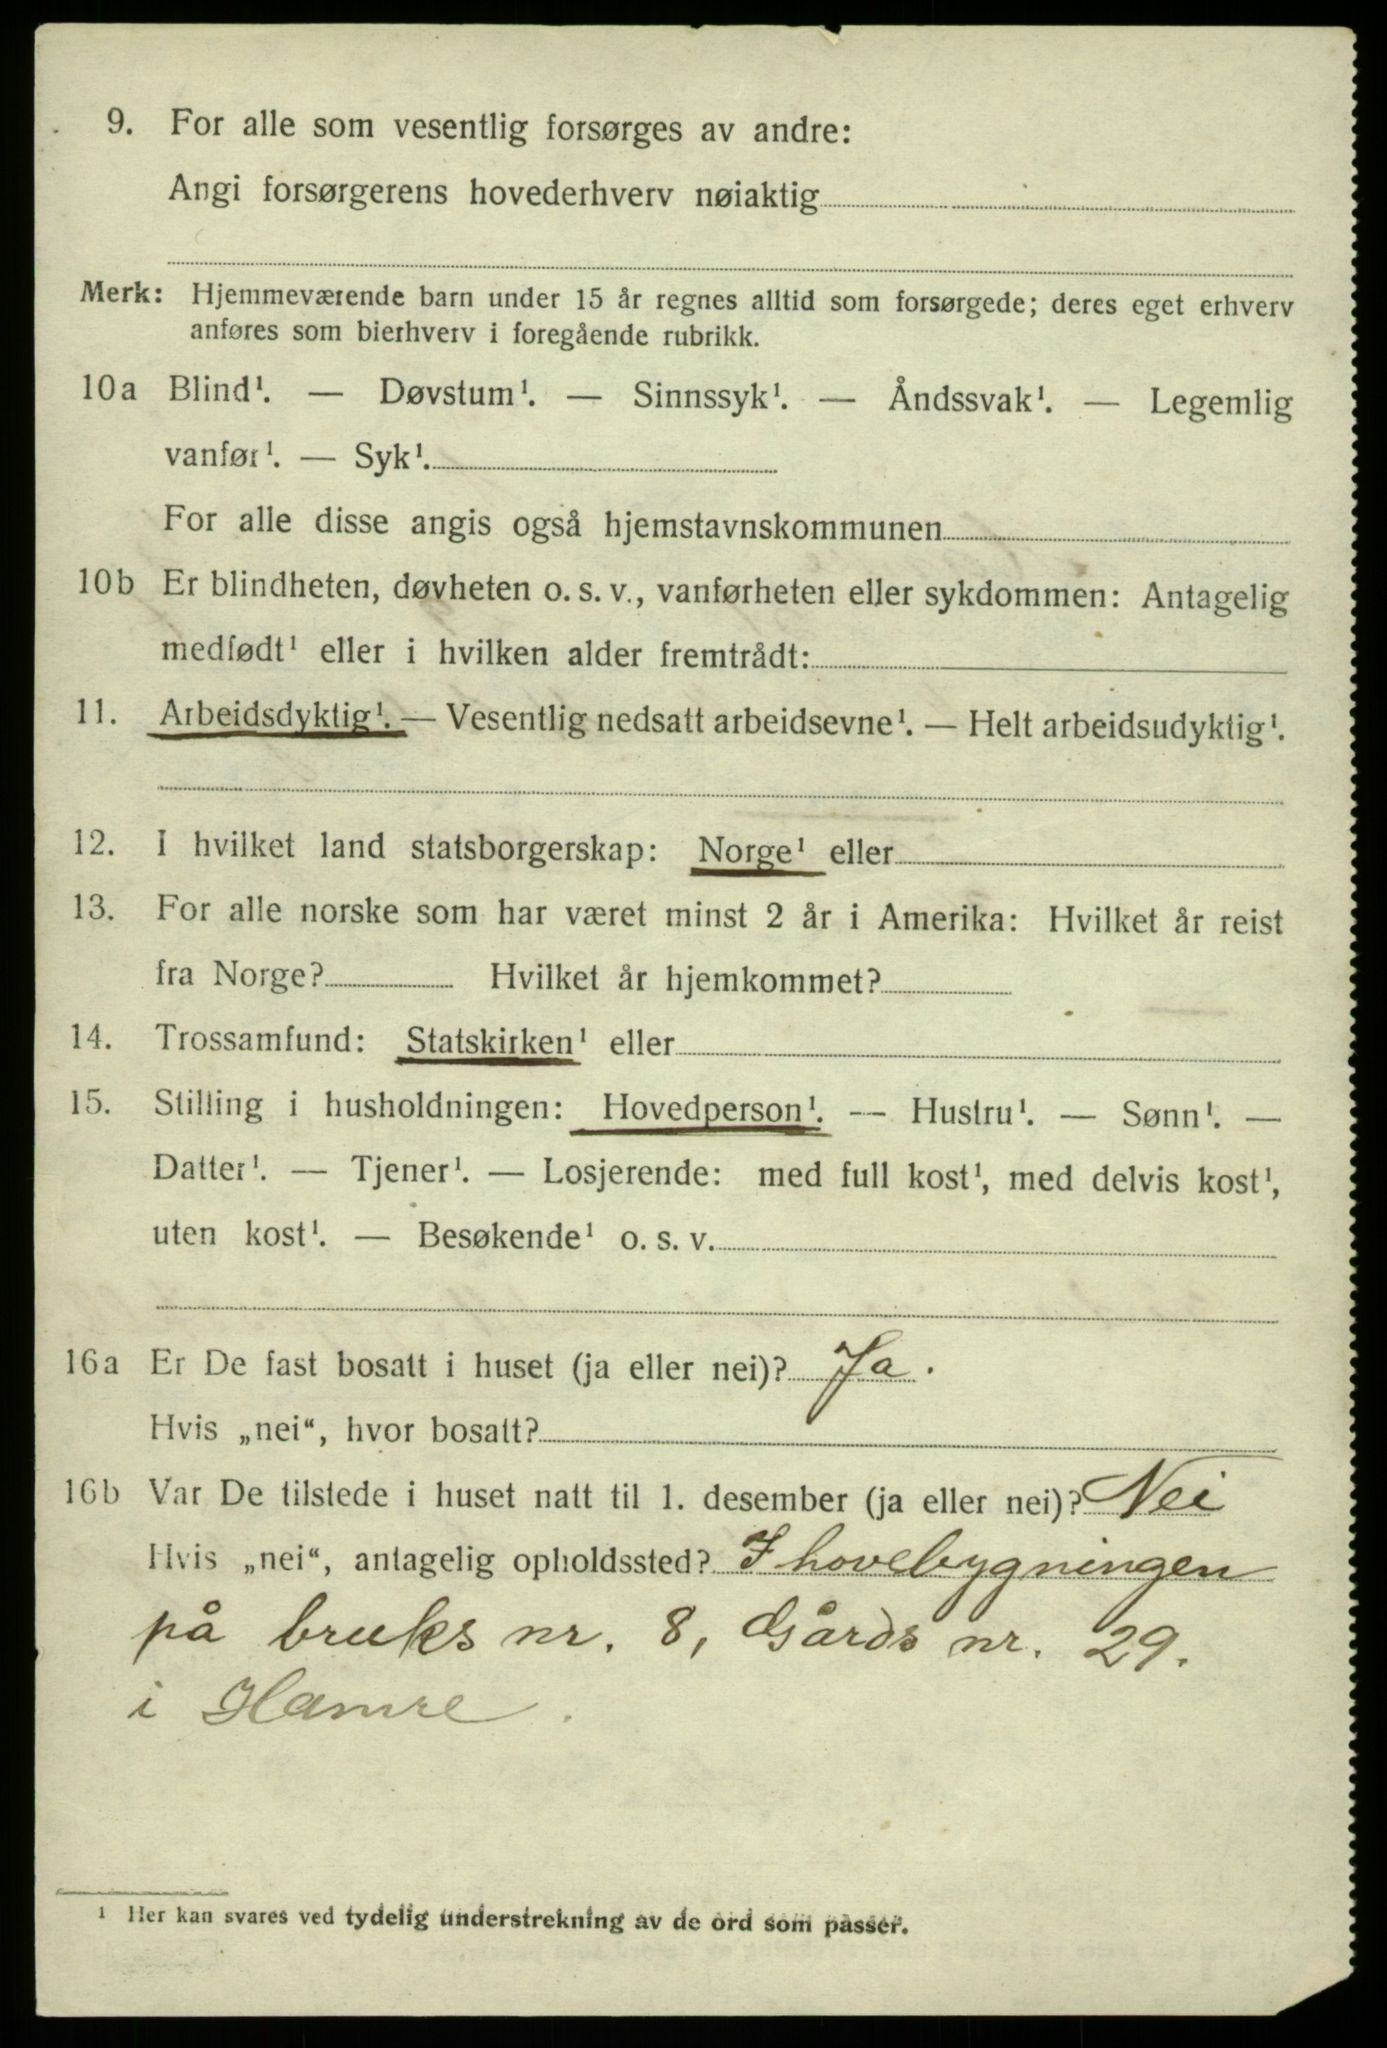 9. For alle som vesentlig forsørges av andre:
Angi forsørgerens hovederhverv nøiaktig
Merk: Hjemmeværende barn under 15 år regnes alltid som forsørgede; deres eget erhverv
anføres som bierhverv i foregående rubrikk.
10a Blind¹. — Døvstum¹. — Sinnssyk¹. — Åndssvak¹. — Legemlig
vanfør¹. — Syk¹.
For alle disse angis også hjemstavnskommunen
10b Er blindheten, døvheten o. s. v., vanførheten eller sykdommen: Antagelig
medfødt¹ eller i hvilken alder fremtrådt:
11. Arbeidsdyktig¹. — Vesentlig nedsatt arbeidsevne¹. — Helt arbeidsudyktig¹.
12. I hvilket land statsborgerskap: Norge¹ eller
13. For alle norske som har været minst 2 år i Amerika: Hvilket år reist
fra Norge? Hvilket år hjemkommet?
14. Trossamfund: Statskirken¹ eller
15. Stilling i husholdningen: Hovedperson¹. — Hustru¹. — Sønn¹. —
Datter¹. — Tjener¹. — Losjerende: med full kost¹, med delvis kost¹,
uten kost¹. — Besøkende¹ o. s. v.
16a Er De fast bosatt i huset (ja eller nei)? Ja.
Hvis „nei“, hvor bosatt?
16b Var De tilstede i huset natt til 1. desember (ja eller nei)? Nei
Hvis „nei“, antagelig opholdssted? I hovebygningen
på bruks nr. 8, Gårds nr. 29.
i Hamre.
¹ Her kan svares ved tydelig understrekning av de ord som passer.